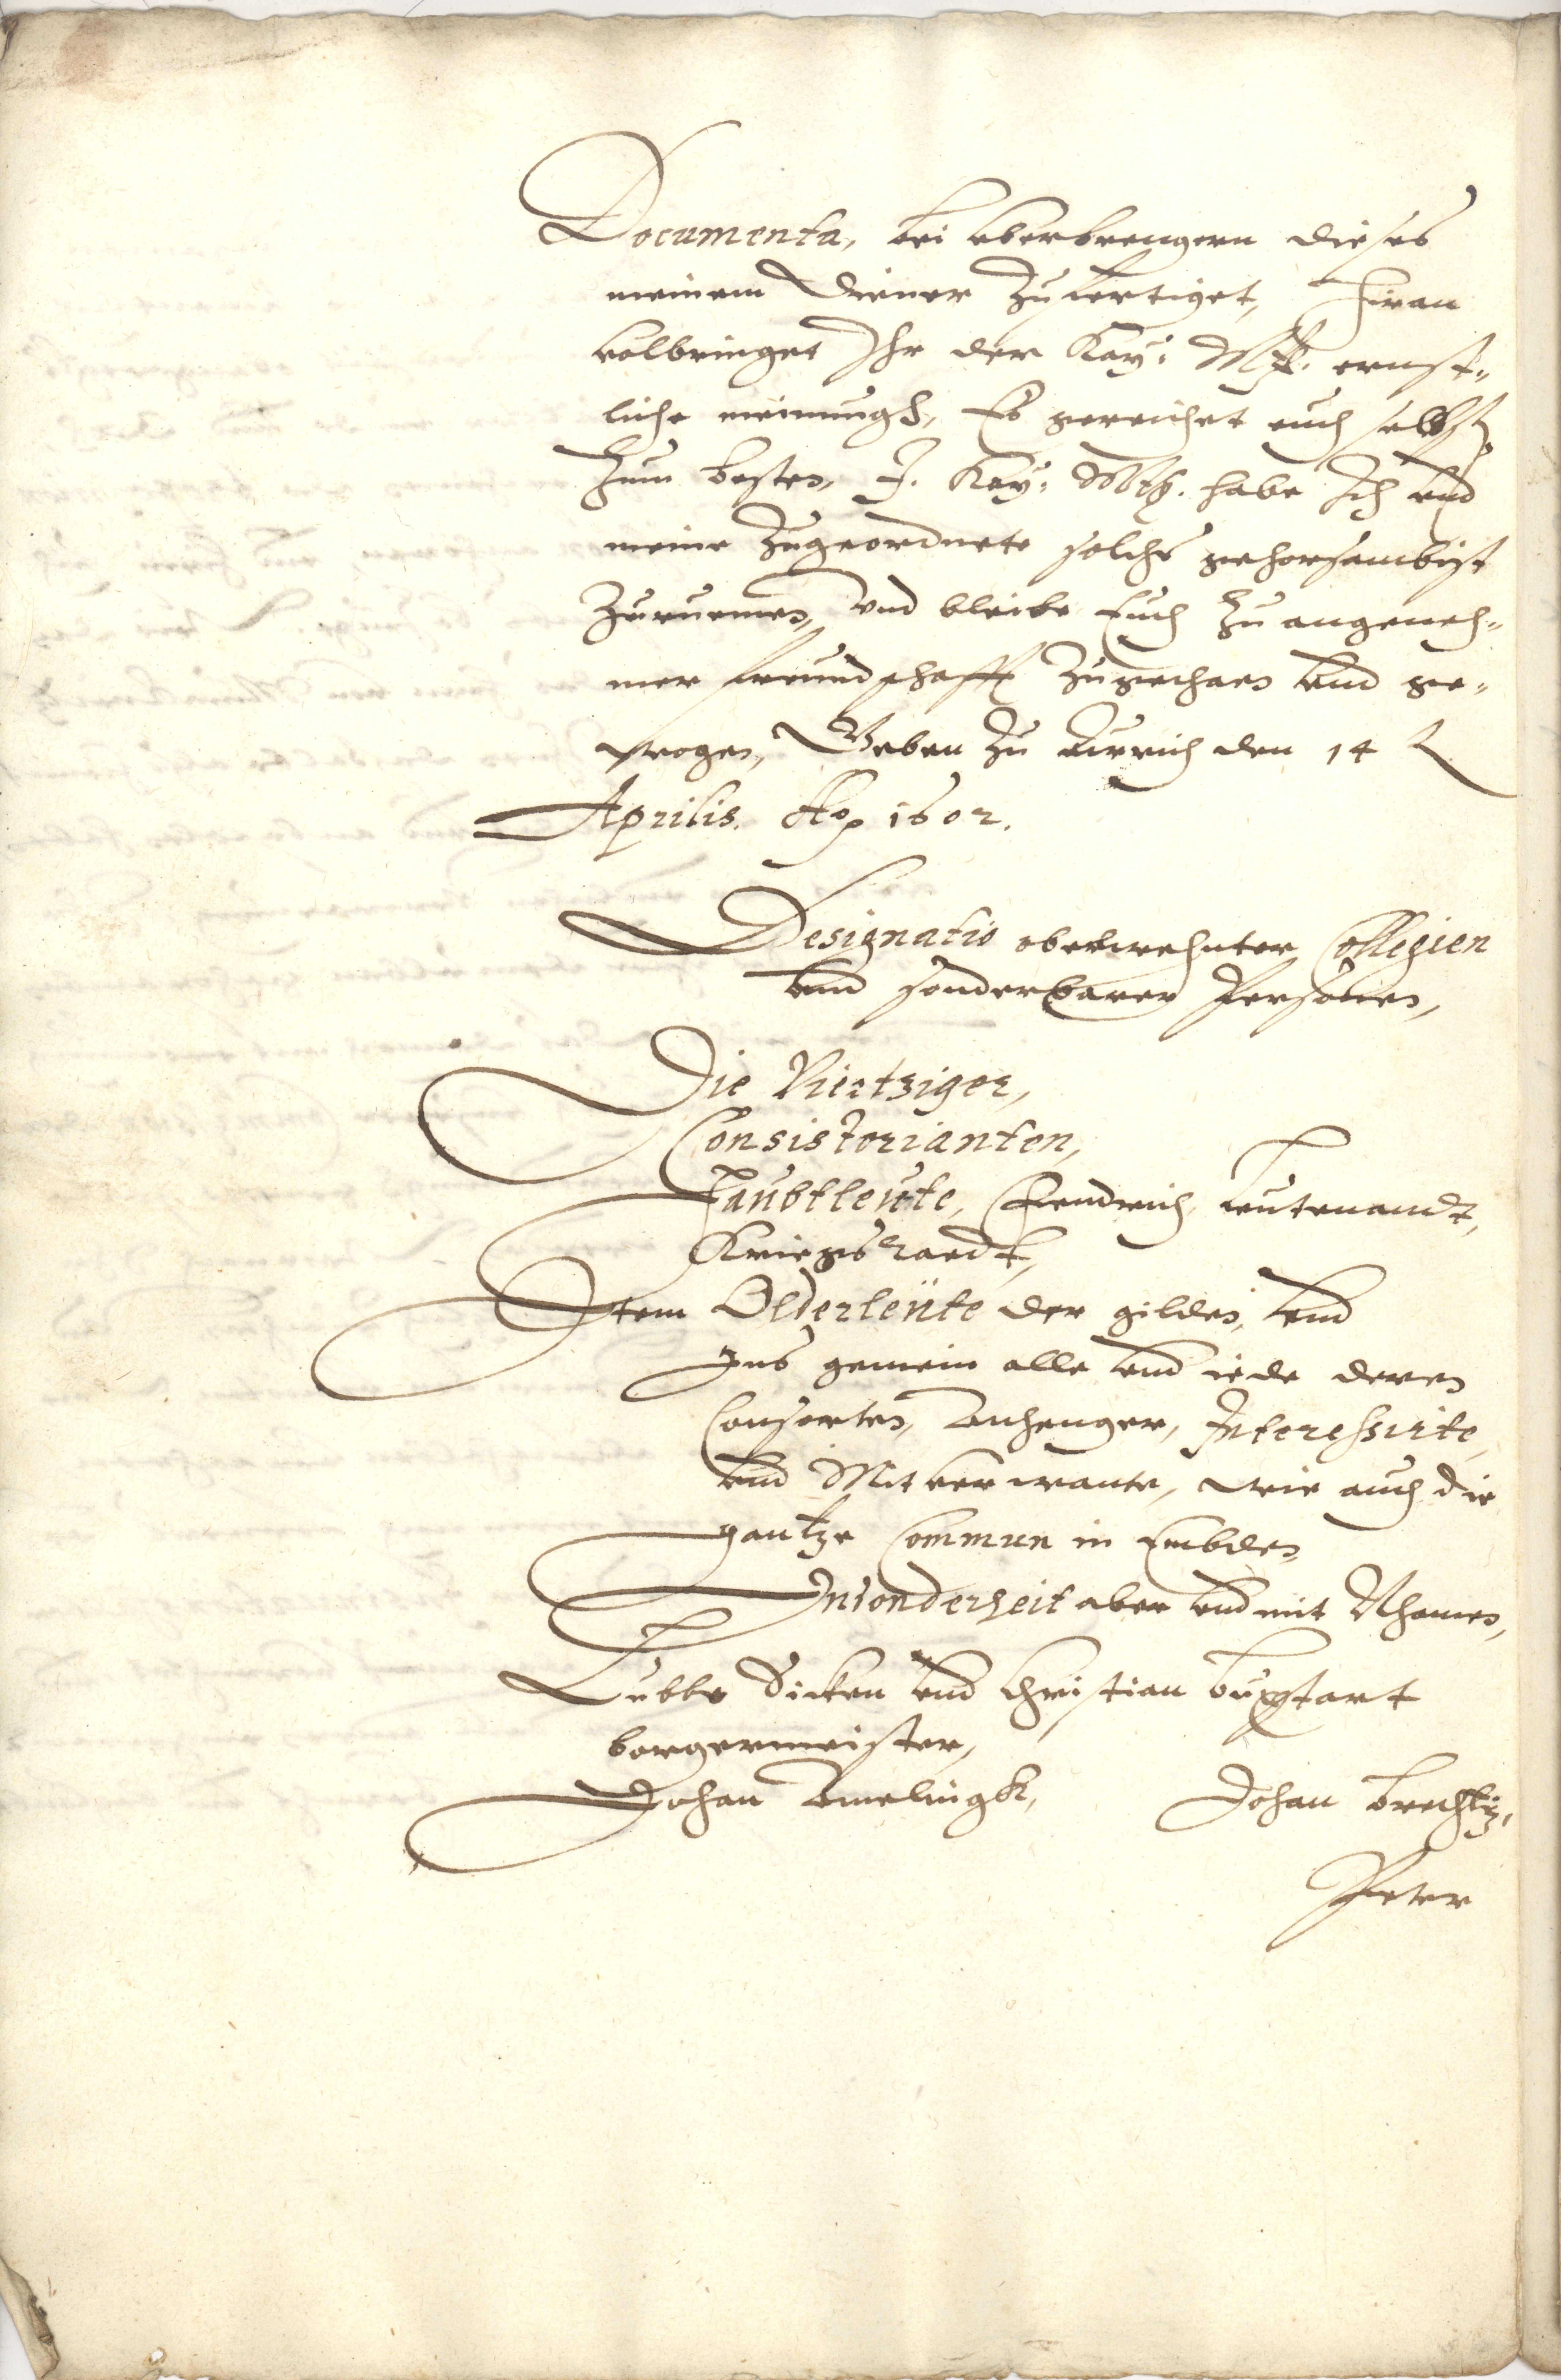 Documenta, bei vberbrengern dieses
meinem Diener zufertiget, Hiran
volbringet Ihr der Kay: Mtt. ernst-
liche meinungh, Es gereichet euch selbst
zum besten, I. Kay: Mtt. habe Ich vnd
meine Zugeordnete solchs gehorsambist
Zuruemen, vnd bleibe Euch zu angeneh-
mer freundschafft zugethaen vnd ge-
wogen, Geben zu Aurich den 14
Aprilis. Ao 1602.
Designatio oberwehnter Collegien
vnd sonderbarer Personen,
Die Viertziger,
Consistorianten,
Haubtleute, Fendrich, Leutenandt,
Kriegsraedt,
Item Olderleüte der gilden, vnd
Ins gemein alle vnd iede deren
Consorten, Anhenger, Interessirte,
vnd Mitverwante, wie auch die
gantze Commun in Embden
Insonderheit aber vnd mit Nhamen,
Lubbe Sicken vnd Christian
borgermeister,
Johan Amelingk, Johan
Peter